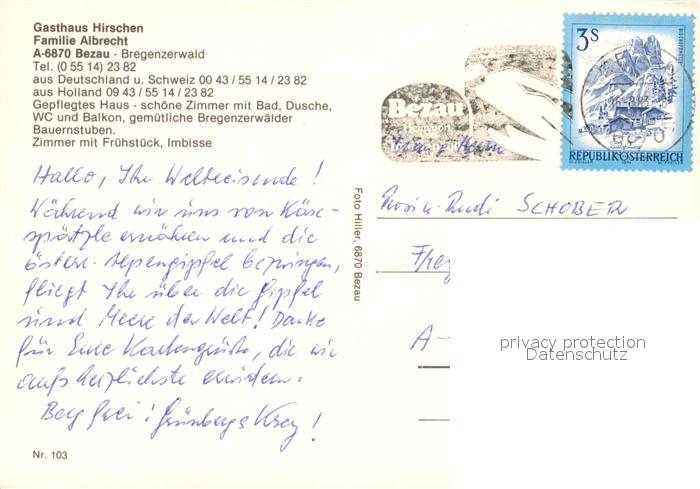 Gasthaus Hirschen
Familie Albrecht
A-6870 Bezau · Bregenzerwald
Tel. (0 55 14) 23 82
aus Deutschland u. Schweiz 00 43 / 55 14 / 23 82
aus Holland 09 43 / 55 14 / 23 82
Gepflegtes Haus · schöne Zimmer mit Bad, Dusche,
WC und Balkon, gemütliche Bregenzerwälder
Bauernstuben.
Zimmer mit Frühstück, Imbisse
Hallo, Ihr Weltreisende!
Während wir uns von Käse-
spätzle ernähren und die
österr. Alpengipfel bezwingen,
fliegt Ihr über die Gipfel
und Meere der Welt! Danke
für Eure Kartengrüße, die wir
aufs herzlichste erwidern.
Berg frei! Grünbergs
Nr. 103
Foto Hiller, 6870 Bezau
Bezau
3S
REPUBLIK ÖSTERREICH
Rudi SCHOBER
A-
privacy protection
Datenschutz